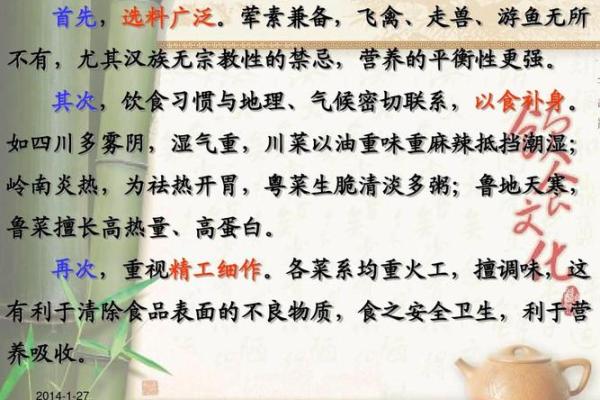 首先，选料广泛。荤素兼备，飞禽、走兽、游鱼无所
不有，尤其汉族无宗教性的禁忌，营养的平衡性更强。
其次，饮食习惯与地理、气候密切联系，以食补身。
如四川多雾阴，湿气重，川菜以油重味重麻辣抵挡潮湿；
岭南炎热，为祛热开胃，粤菜生脆清淡多粥；鲁地天寒，
鲁菜擅长高热量、高蛋白。
再次，重视精工细作。各菜系均重火工，擅调味，这
有利于清除食品表面的不良物质，食之安全卫生，利于营
养吸收。
饮食文化
2014-1-27